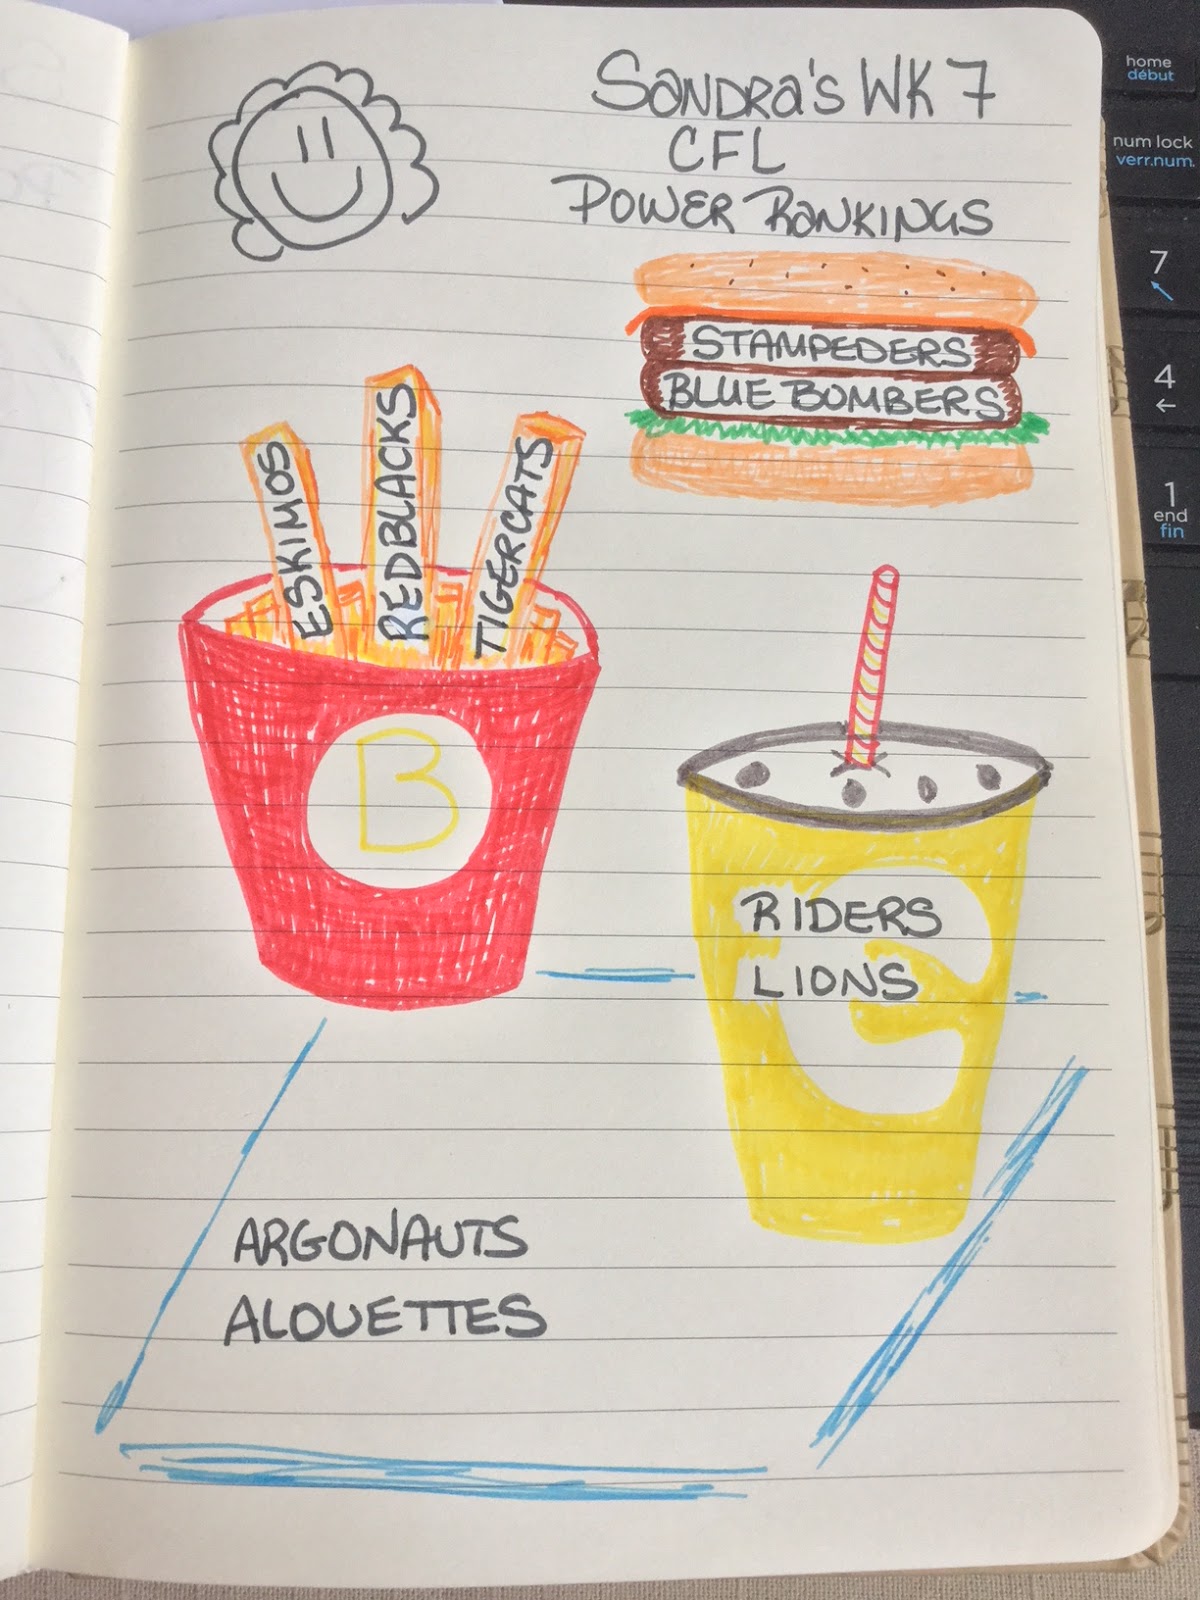 Sandra's WK 7
CFL
Power Rankings
STAMPEDERS
BLUE BOMBERS
ESKIMOS
REDBLACKS
TIGERCATS
B
G
RIDERS
LIONS
ARGONAUTS
ALOUETTES
home
début
num lock
verr.num.
7
4
1
end
fin